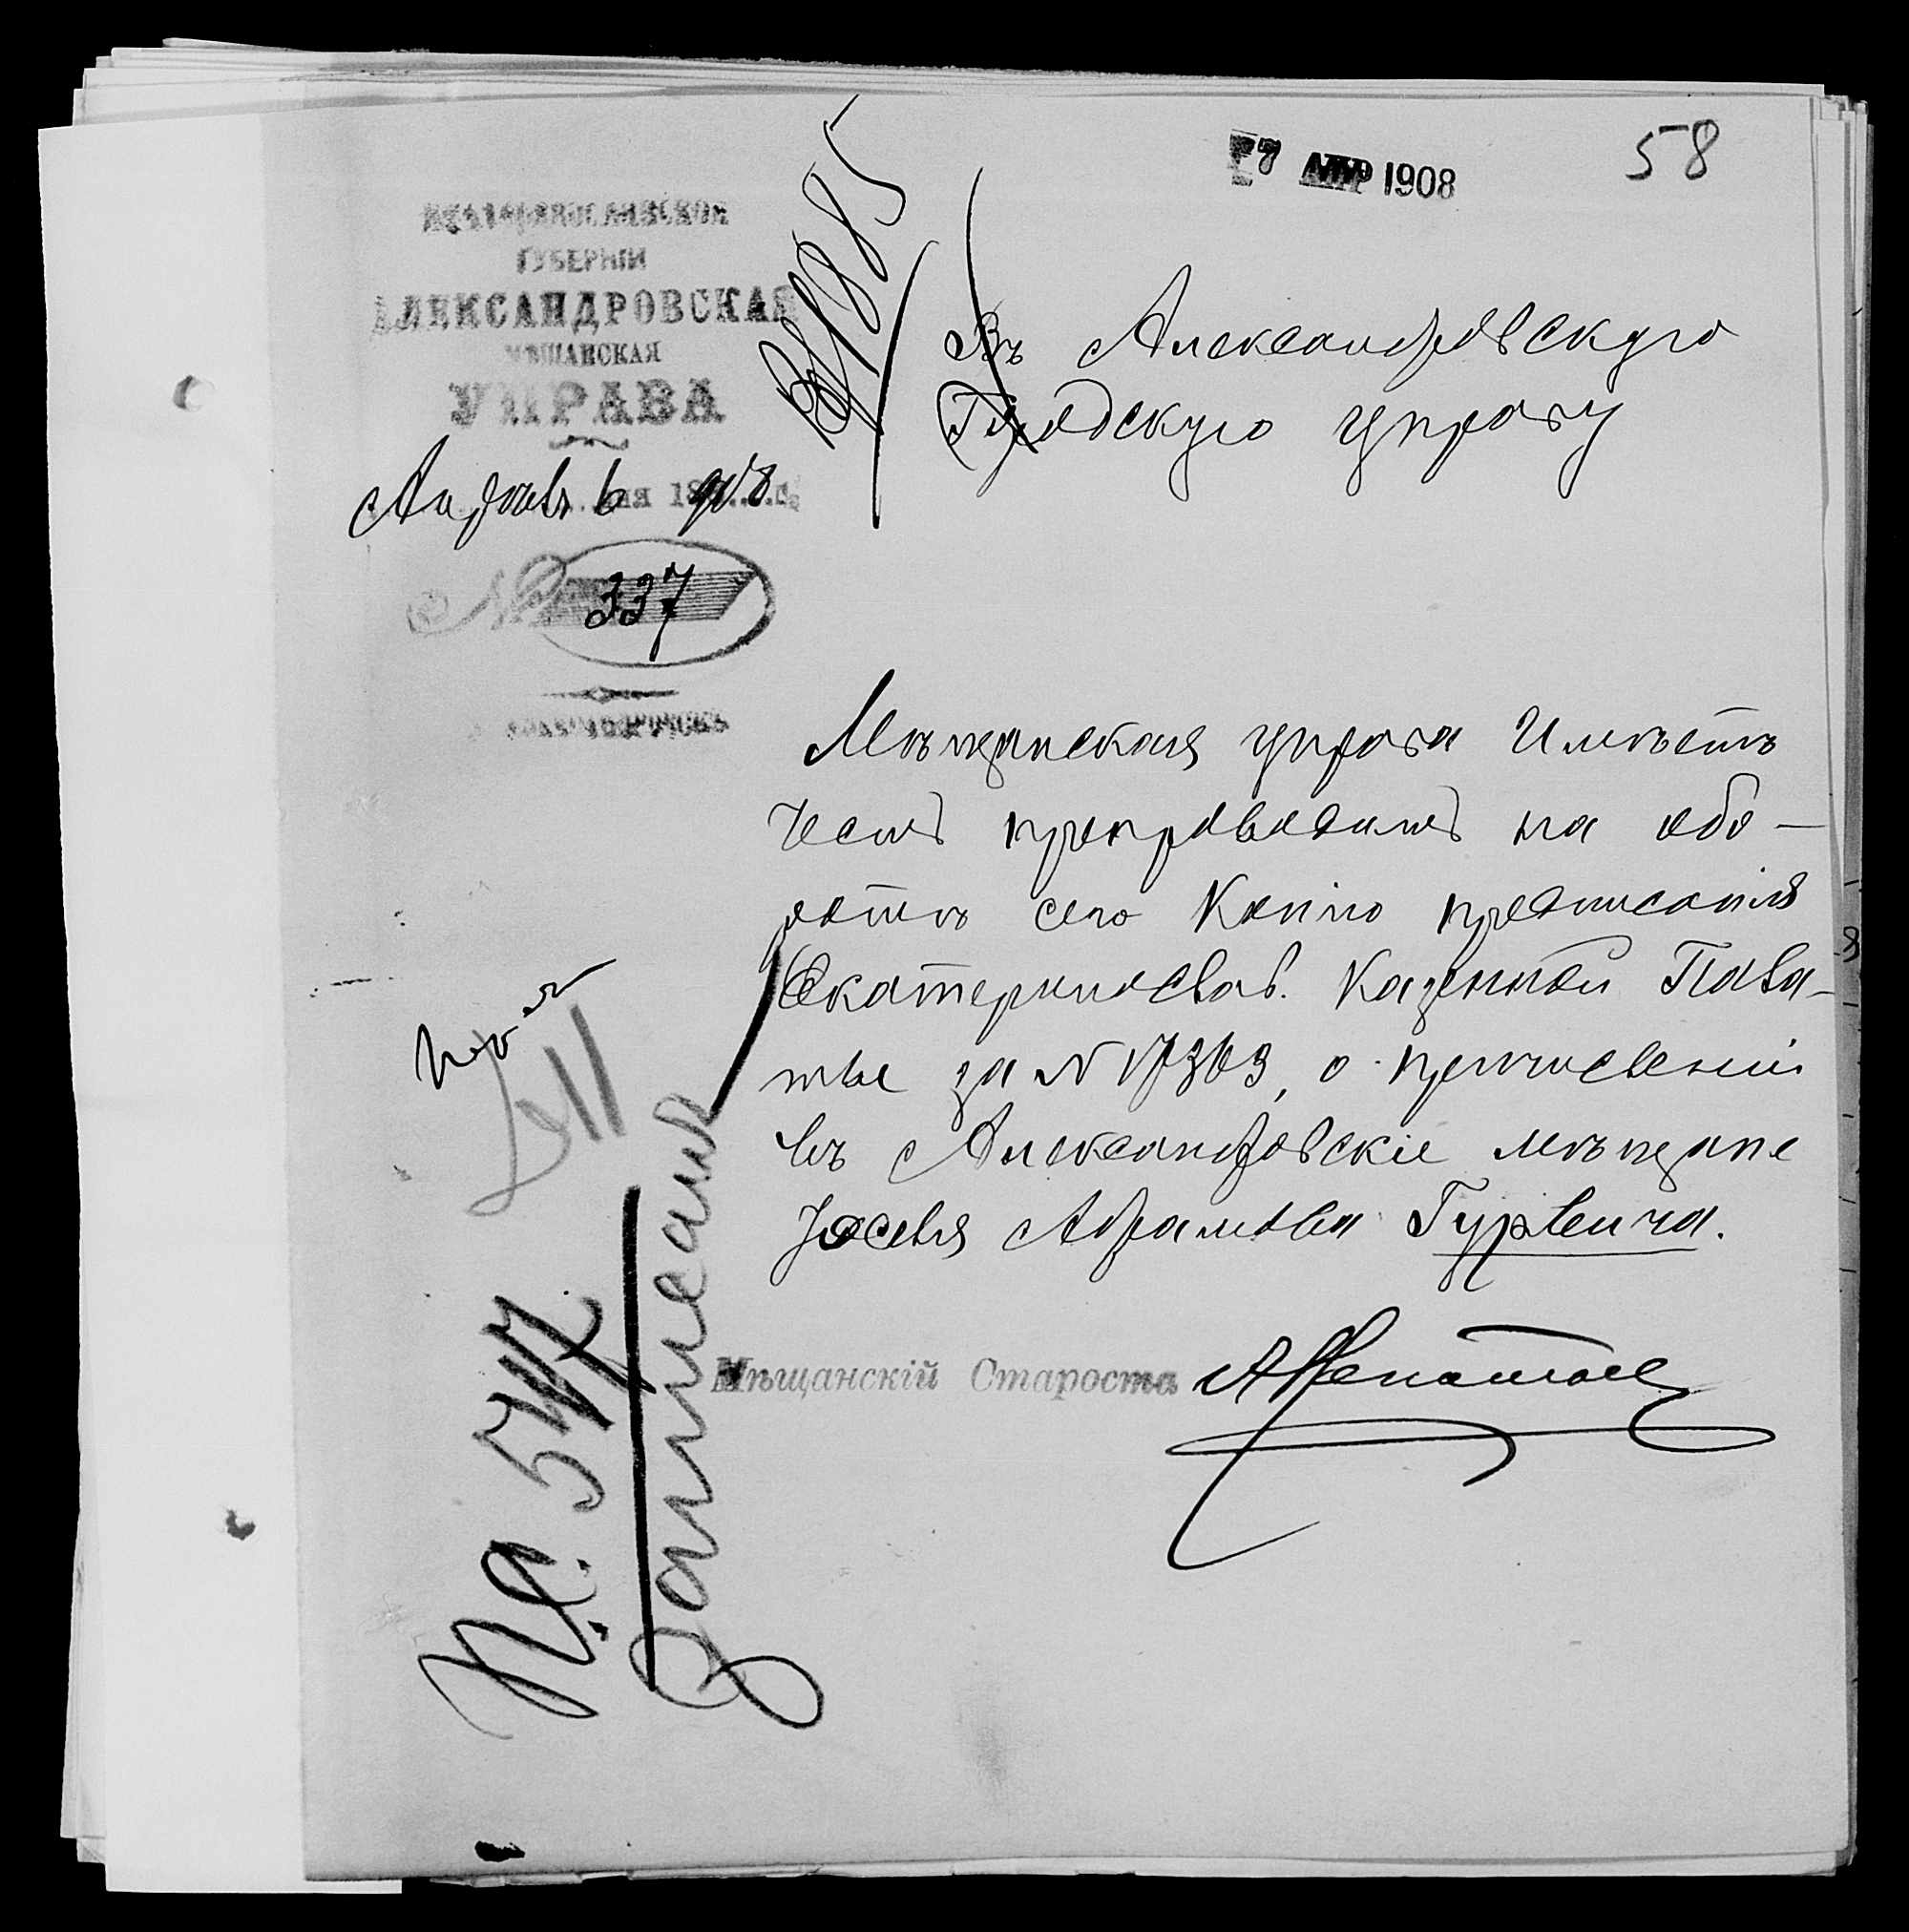 58
7 АПР 1908
ЕКАТЕРИНОСЛАВСКОЙ
ГУБЕРНІИ
АЛЕКСАНДРОВСКАЯ
МѢЩАНСКАЯ
УПРАВА
Апрѣля 6 дня 1908 г.
№ 337
Г. АЛЕКСАНДРОВСКЪ
1885
Въ Александровскую
Городскую управу
Мѣщанская управа Имѣетъ
честь препроводить на обо-
ротѣ сего Копію предписанія
Екатериносвав. Казенной Пала-
ты за N 17363, о причисленіи
въ Александровскіе мѣщане
Іосевя Абрамова Гурвича.
Мѣщанскій Староста
П.С. 577
Записанъ